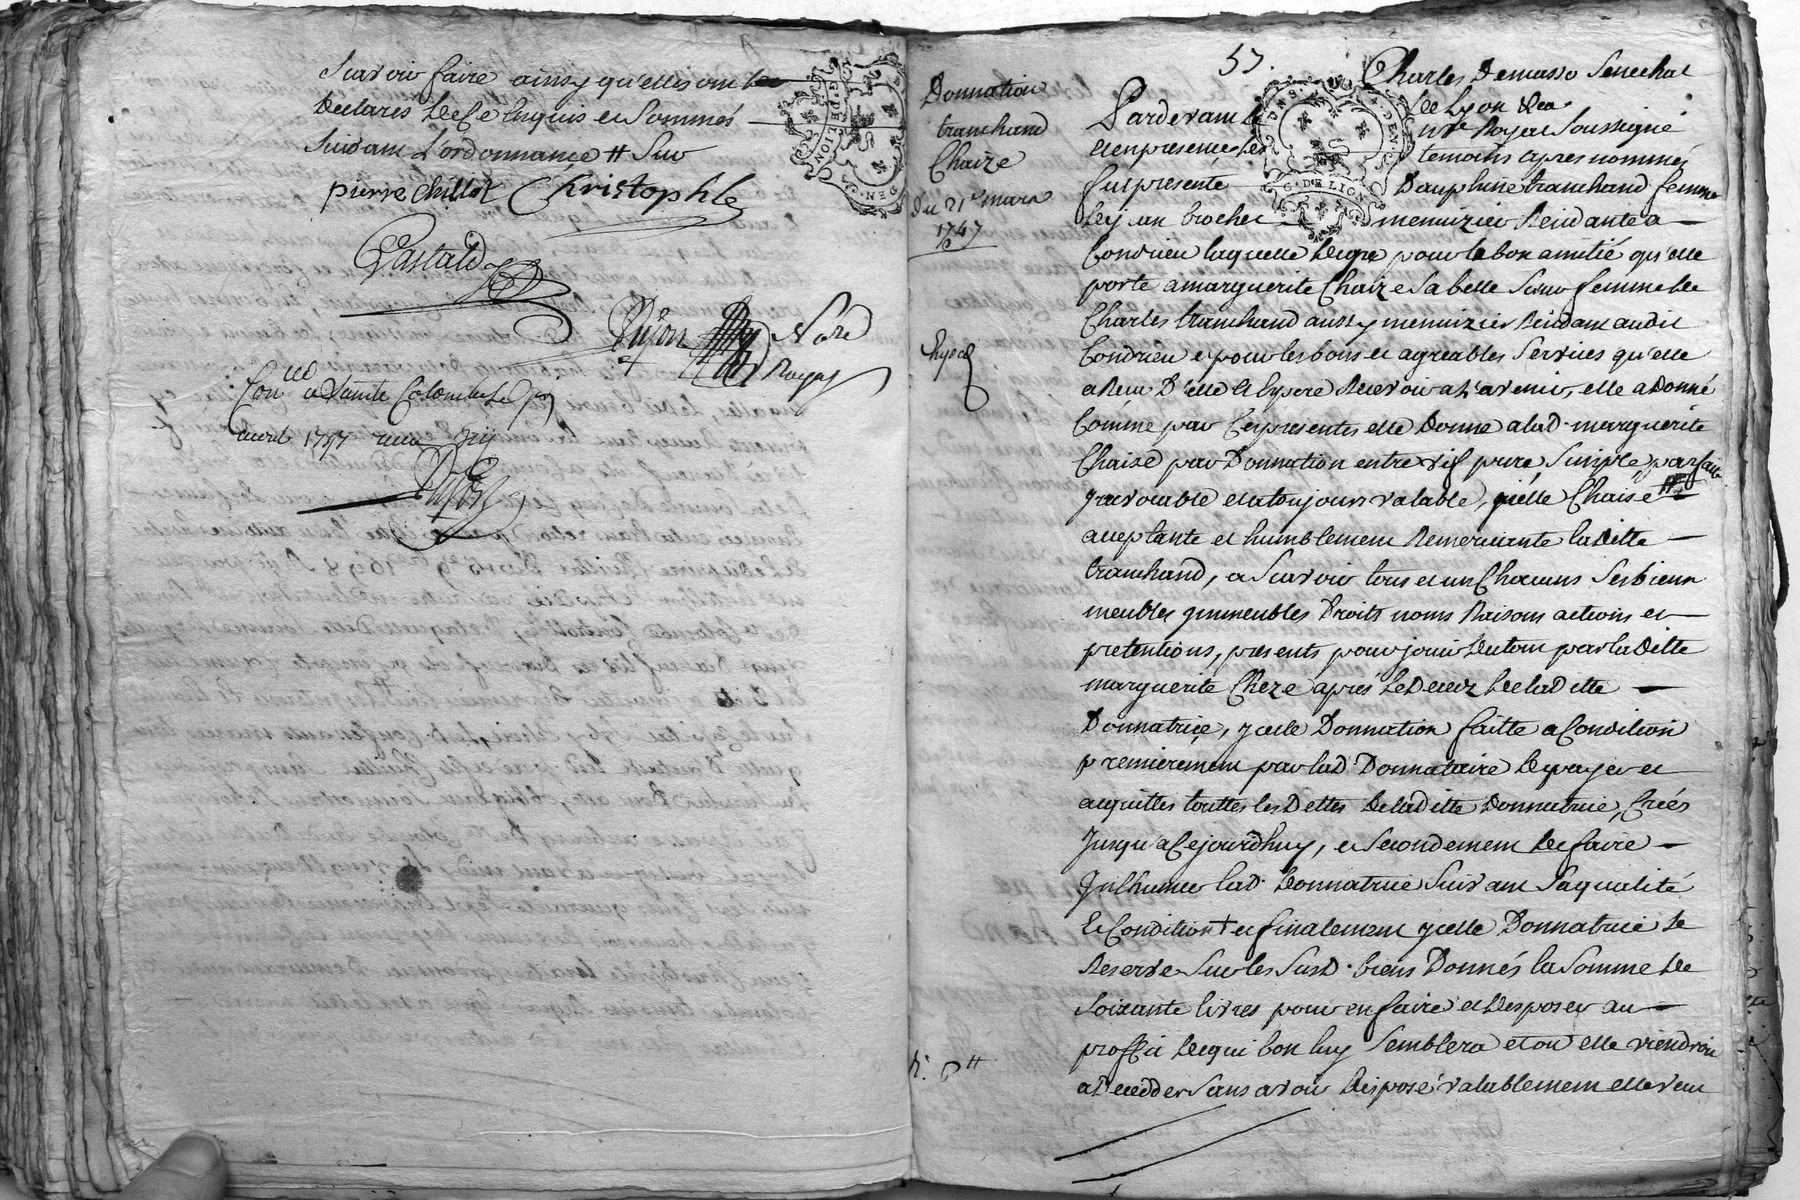 Scavoir faire ainsy qu'elles ont
Declarés de Ce Enquis et Sommés
Suivant L'ordonnance
pierre Chillot Christophle
Gastald
Dujon No.re
Royal
Con.lé a Sainte Colombe Le
avril 1747 recu
Donnation
tranchand
Chaize
du 21e mars
1747
57.
Charles Demasso Senechal
de Lyon
Pardevant Le n.re Royal Soussigné
et en presence des temoins apres nommés
fut presente Dauphine tranchand femme
de jean brochet menuizier Residante a
Condrieu laquelle de gre pour la bon amitié qu'elle
porte a marguerite Chaize Sa belle Soeur femme de
Charles tranchand aussy menuizier Residant audit
Condrieu et pour les bons et agreables Services qu'elle
a Reçu D'elle et Espere Recevoir a L'avenir, elle a Donné
Comme par Ces presentes elle Donne a lad. marguerite
Chaize par Donnation entre vif pure Simple parfaite
jrrevocable et a toujours valable, jcelle Chaise
acceptante et humblement Remerciante laditte
tranchand, a Scavoir tous et un Chacuns Ses biens
meubles jmmeubles Droits noms Raisons actions et
pretentions, presents pour jouir du tout par laditte
marguerite Cheze aprés le Decez de laditte
Donnatrice, jcelle Donnation faitte a Condition
premierement par lad. Donnataire de payer et
acquitter touttes les Dettes De laditte Donnatrice, Créés
Jusqu'a Cejourd'huy, et Secondement de faire
Jnlhumer lad. Donnatrice Suivant Sa qualité
et Condition + et finalement jcelle Donnatrice Se
Reserve Sur les Susd. biens Donnés la Somme de
Soixante livres pour en faire et Disposer au
proffit de qui bon luy Semblera et ou elle viendroit
a Decedder Sans avoir Disposé valablement elle veut